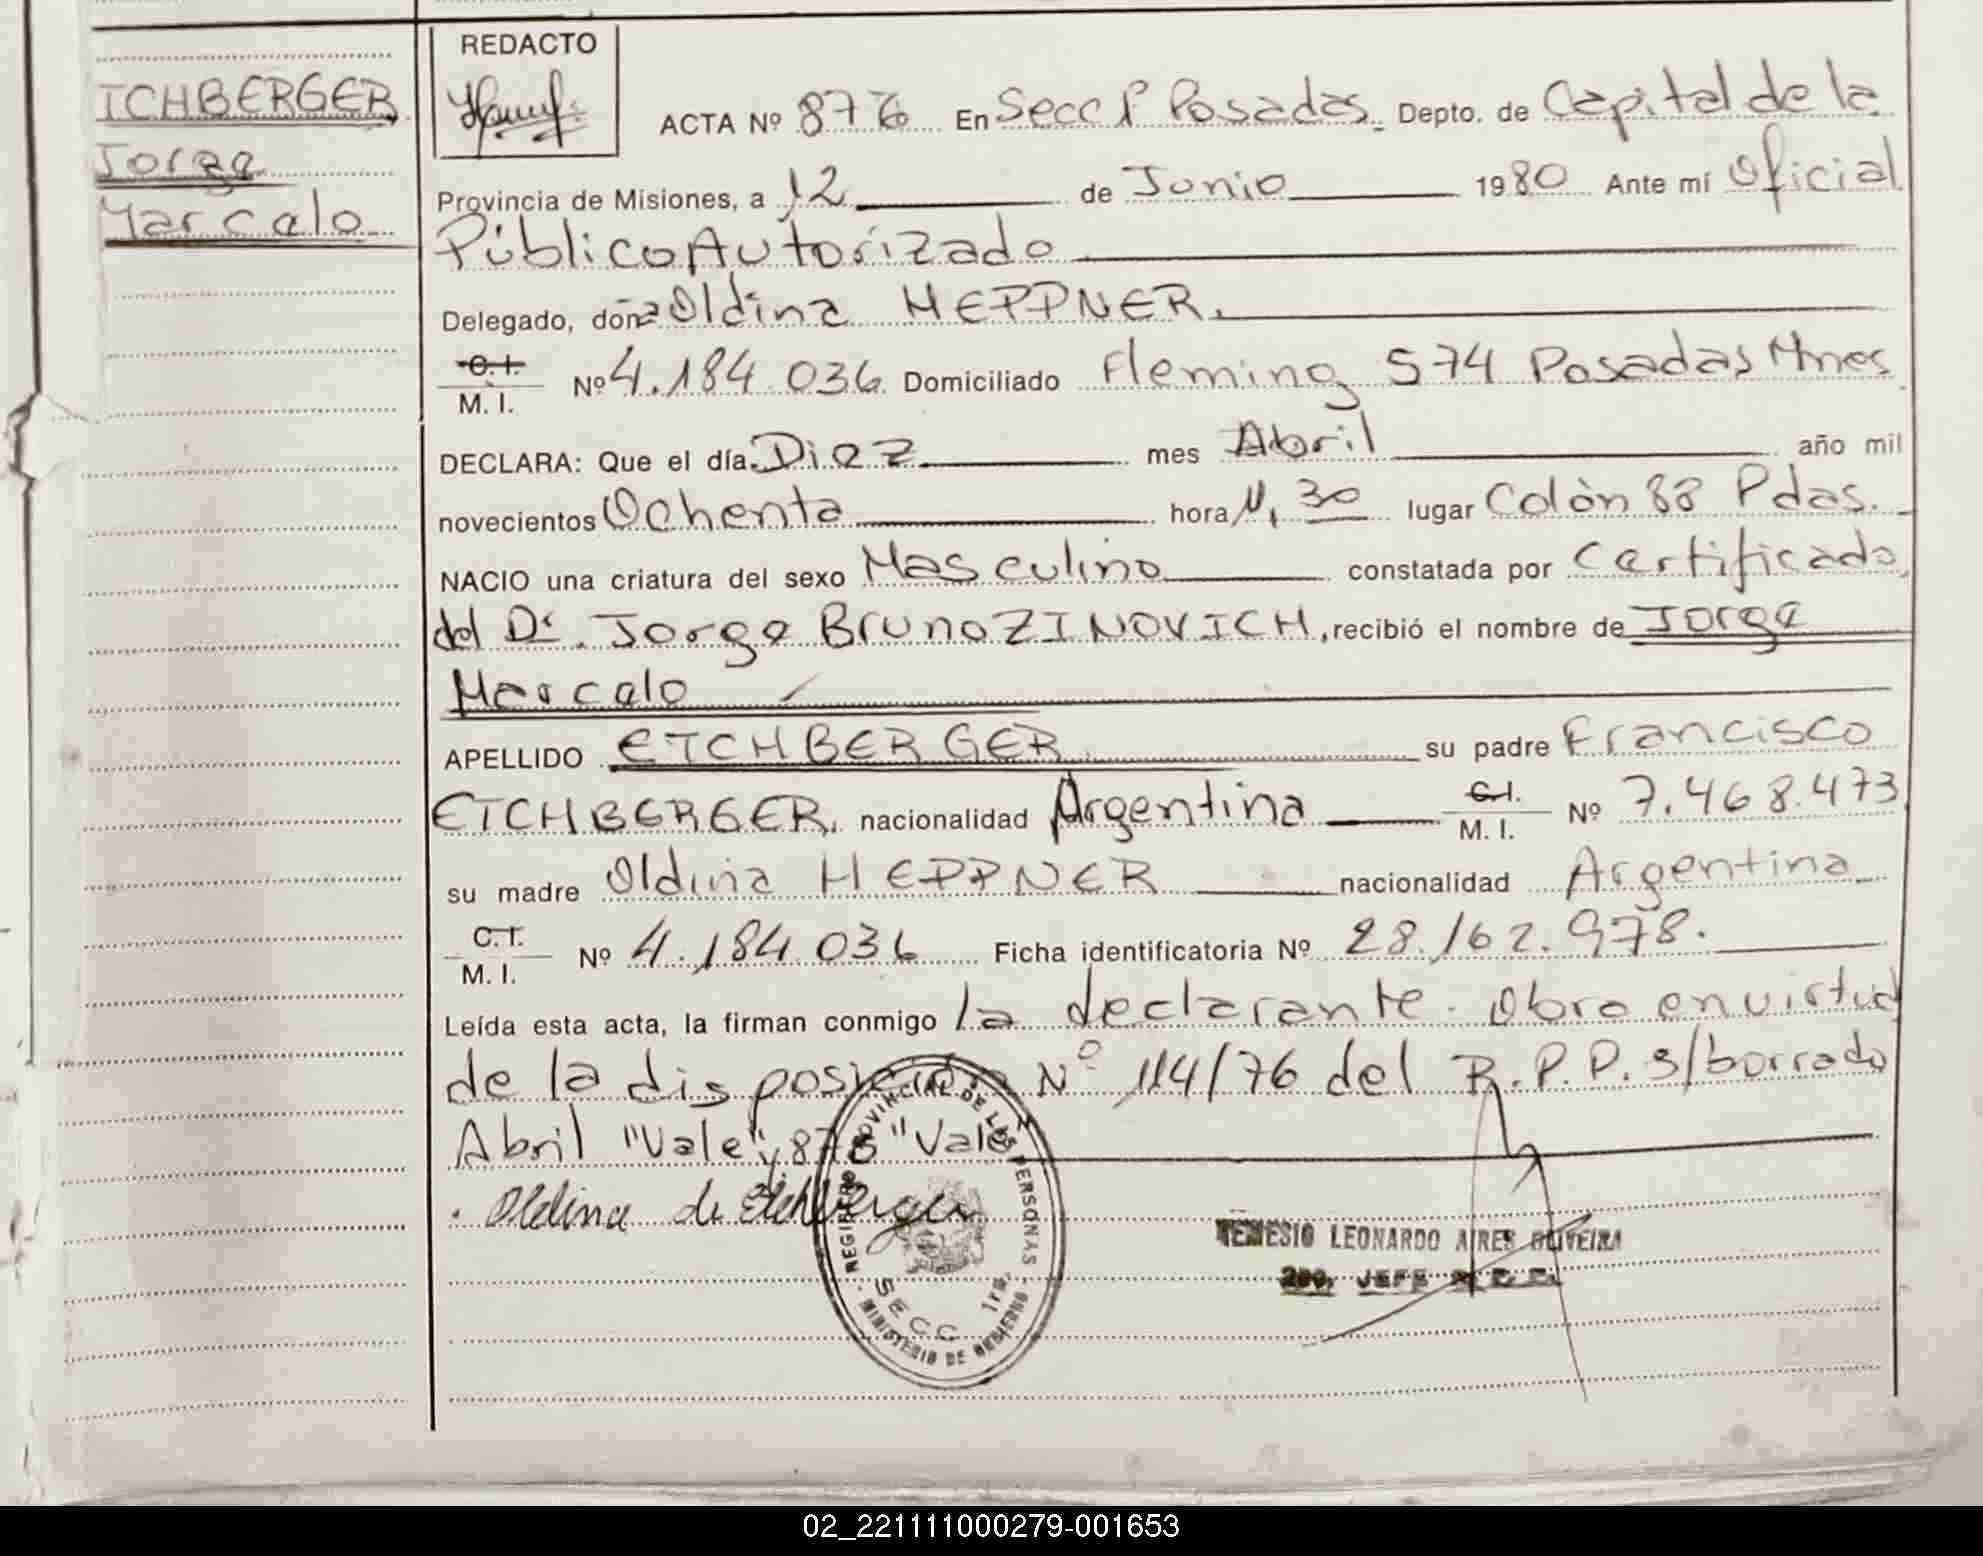 ICHBERGER
Jorge
Marcelo
REDACTO
ACTA Nº 876 En Secc 1ª Posadas Depto. de Capital de la
Provincia de Misiones, a 12 de Junio 1980 Ante mí Oficial
Público Autorizado
Delegado, doña Oldina HEPPNER.
C. I.
M. I. Nº 4.184.036 Domiciliado Fleming 574 Posadas Mnes
DECLARA: Que el día Diez mes Abril año mil
novecientos Ochenta hora 11,30 lugar Colón 88 Pdas.
NACIO una criatura del sexo Masculino constatada por Certificado
del Dr. Jorge Bruno ZINOVICH, recibió el nombre de Jorge
Marcelo
APELLIDO EICHBERGER su padre Francisco
EICHBERGER, nacionalidad Argentina C. I.
M. I. Nº 7.468.473
su madre Oldina HEPPNER nacionalidad Argentina
C. I.
M. I. Nº 4.184.036 Ficha identificatoria Nº 28.162.978.
Leída esta acta, la firman conmigo la declarante. Obra en virtud
de la disposición Nº 114/76 del R.P.P. s/borrado
Abril "Vale" y 876 "Vale"
Oldina de Eichberger
REGISTRO PROVINCIAL DE LAS PERSONAS
SECC 1ra.
MINISTERIO DE GOBIERNO
NEMESIO LEONARDO AIRES OLIVEIRA
2do. JEFE
02_221111000279-001653